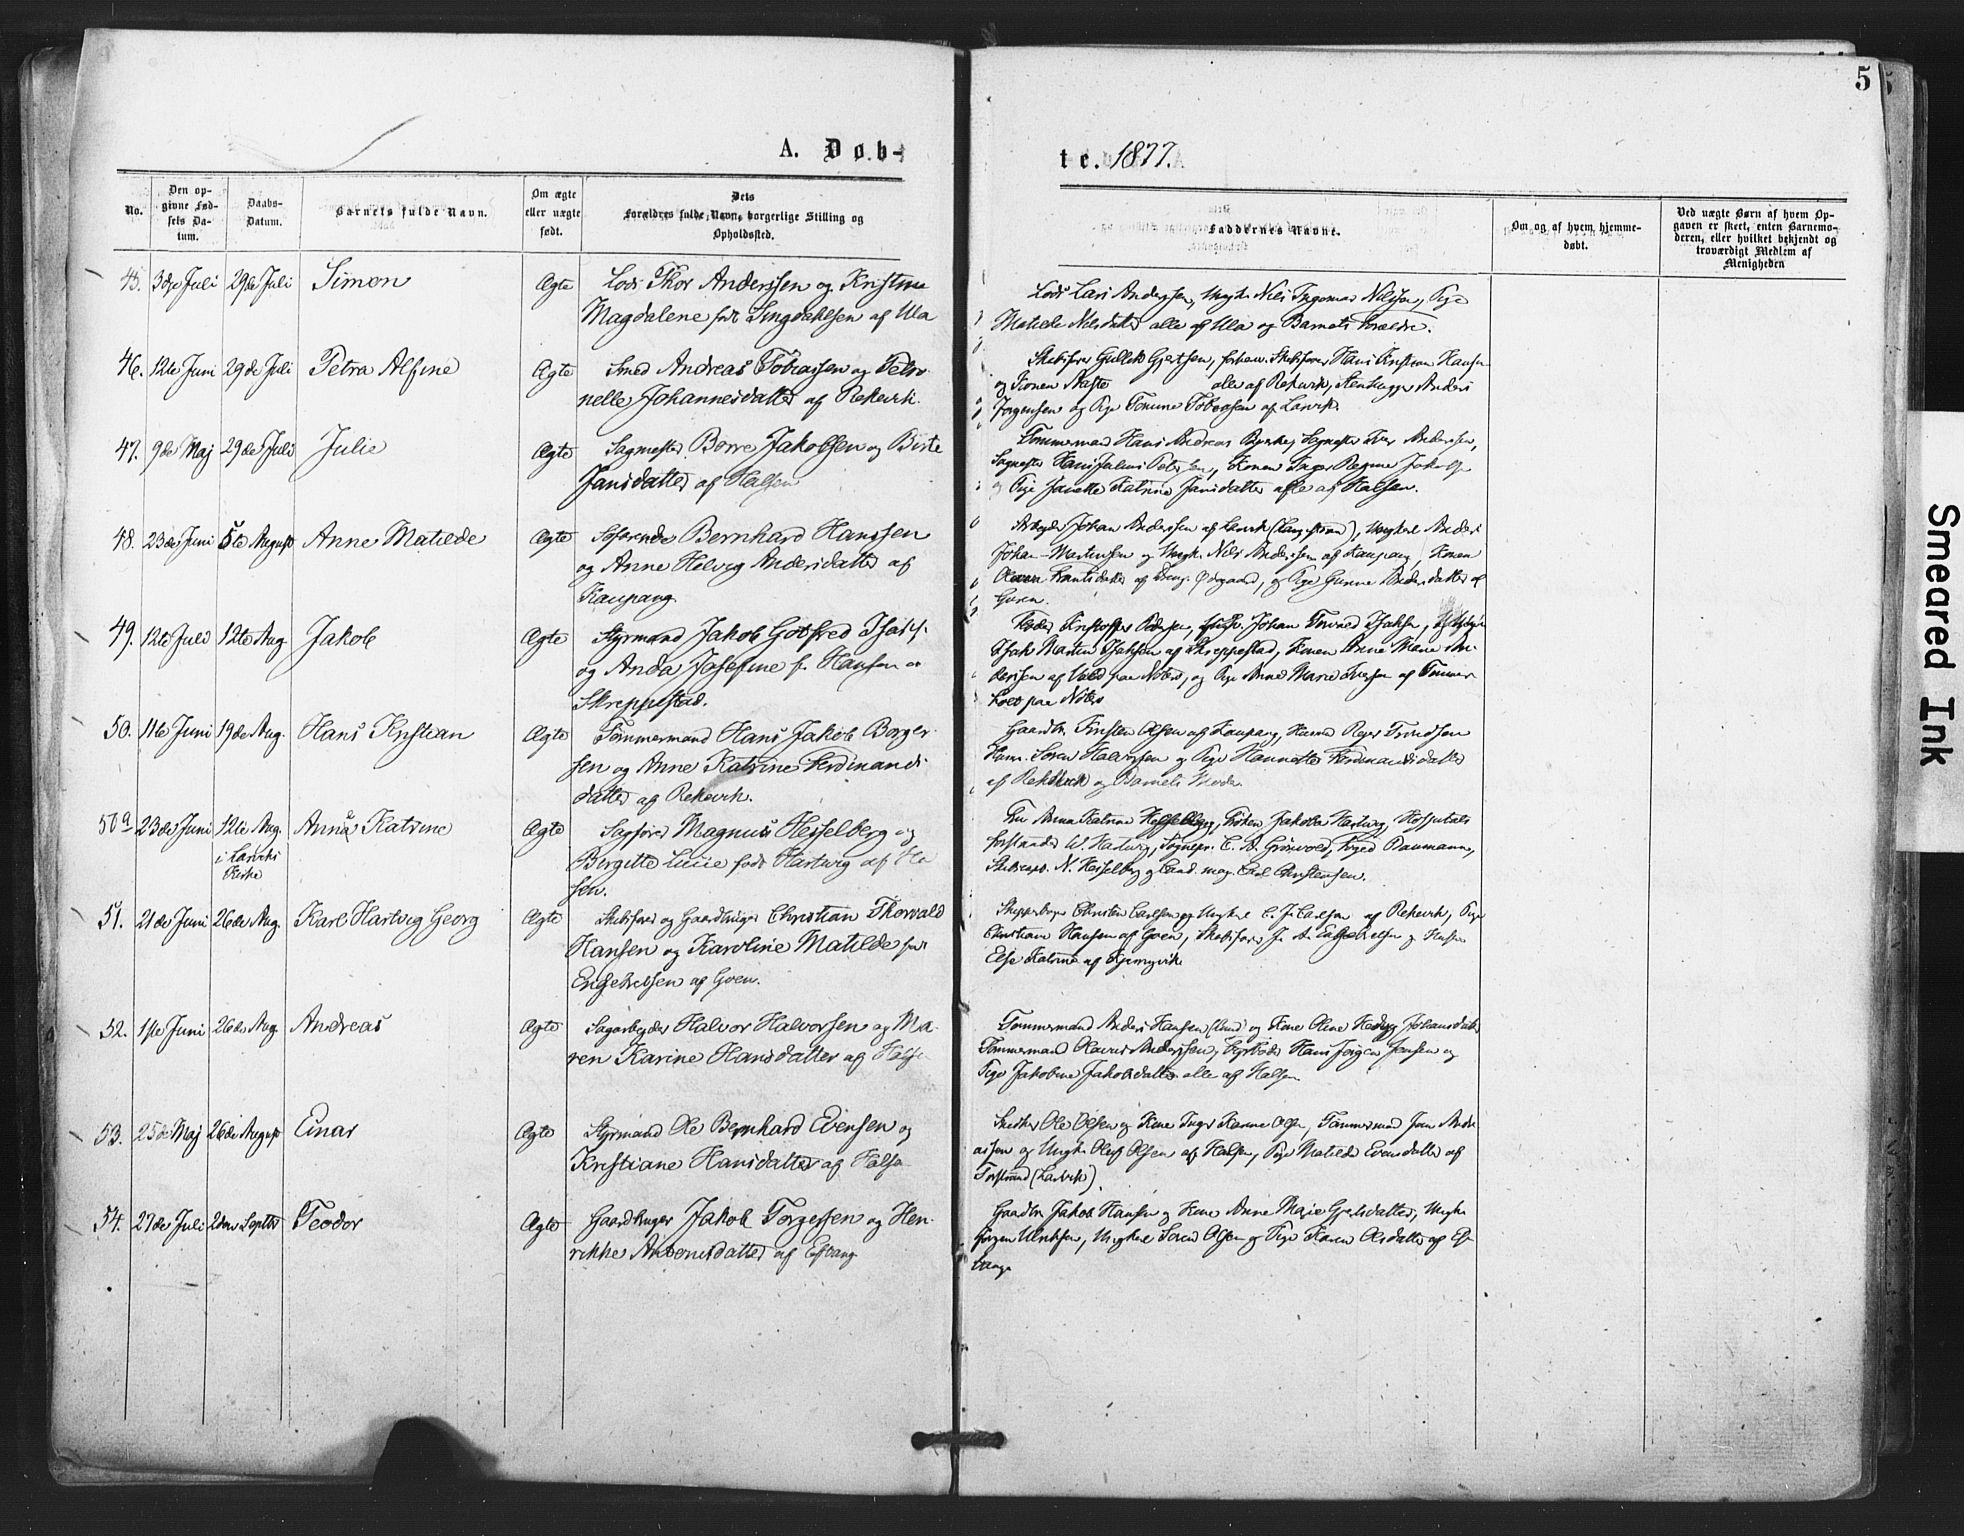 5
A. Døb-
te. 1877.
No.
Den op-
givne Fød-
sels Da-
tum.
Daabs-
Datum.
Barnets fulde Navn.
Om ægte
eller uægte
født.
Dets
Forældres fulde Navn, borgerlige Stilling og
Opholdssted.
Faddernes Navne.
Om og af hvem hjemme-
døbt.
Ved uægte Børn af hvem Op-
gaven er skeet, enten Barnemo-
deren, eller hvilket bekjendt og
troværdigt Medlem af
Menigheden
45. 3die Juli 29de Juli Simon Ægte Lods Thor Anderssen og Kristine
Magdalene født Lingdahlsen af Ula
Lods Lars Anderssen, Ungk. Nils Ingomar Nilssen, Pige
Matilde Nilsdatter alle af Ula og Barnets Forældre.
46. 12te Juni 29de Juli Petra Alfine Ægte Smed Andreas Tobiassen og Petro-
nelle Johannesdatter af Rekevik.
Skibsfører Gullik Gjertsen, forhen. Skibsfører Hans Kristian Hansen
og Konen Aaste alle af Rekevik, Stenhugger Anders
Jørgensen og Pige Tomine Tobiassen af Larvik.
47. 9de Maj 29de Juli Julie Ægte Sagmester Borre Jakobsen og Birte
Jansdatter af Halsen
Tømmermand Hans Andreas Sagmester Iver Anderssen,
Sagmester Hans Julius Peterssen, Konen Inger Regine Jakobs
og Pige Janette Katrine Jansdatter alle af Halsen.
48. 23de Juni 5te August Anne Matilde Ægte Søfarende Bernhard Hanssen
og Anne Helvig Andersdatter af
Kaupang
Arbeyder Johan Anderssen af Larvik (Langestrand), Ungkarl Anders
Johan Martinsen og Ungk. Nils Anderssen af Kaupang, Konen
Olava Frantsdatter af Ødegaard, og Pige Gunne Andersdatter af
Goen.
49. 12te Juli 12te Aug. Jakob Ægte Styrmand Jakob Gotfred Isaks.
og Anda Josefine f. Hansen af
Skreppestad.
Kristoffer Pedersen, Johan Isaksen,
Isak Martin Isaksen af Skreppestad, Konen Anne Marie An-
derssen af Vold paa Nøterø, og Pige Anne Marie Iversen af Tømmer-
holt paa Nøterø
50. 11te Juni 19de Aug. Hans Kristian Ægte Tømmermand Hans Jakob Borger-
sen og Anne Katrine Ferdinands
datter af Rekevik.
Gaardbr. Kristen Olsen af Kaupang,
Søren Halvorssen og Pige Hannette Ferdinandsdatter
af Rekkevik og Barnets Moder.
50a 23de Juni 12te Aug.
i Larviks
Kirke
Anna Katrine Ægte Sagfører Magnus Hesselberg og
Bergitte Lucie født Hartwig af Hal-
sen.
Fru Anna Katrine Hesselberg, Frøken Jakoba Hartwig, Hospitals
forstander W. Hartwig, Sognepr. C. A. Grønvold, Baumann,
N. Hesselberg og Cand. mag. Carl Christensen.
51. 21de Juni 26de Aug. Karl Hartvig Georg Ægte Skibsfører og Gaardbruger Christian Thorvald
Hansen og Karoline Matilde født
Engebretsen af Goen.
Christen Carlsen og Ungkarl C. J. Carlsen af Rekevik, Pige
Christiane Hansen af Goen, Skibsfører J. A. Engebretsen og
Else Katrine af Kjerringvik
52. 1ste Juni 26de Aug. Andreas Ægte Sagarbeyder Halvor Halvorsen og Ma-
ren Karine Hansdatter af Halsen
Tømmermand Anders Hansen (Lund) og Kone Oline Hedvig Johansdatter
Tømmermand Olaves Anderssen, Fyrbøder Hans Jørgen Jensen og
Pige Jakobine Jakobsdatter alle af Halsen
53. 25de Maj 26de August Einar Ægte Styrmand Ole Bernhard Evensen og
Kristiane Hansdatter af Halsen
Ole Olsen og Kone Inger Karine Olsen, Tømmermand Jan Andre-
assen og Ungk. Oluf Olsen af Halsen, Pige Matilde Evensdatter af
Torstrand (Larvik).
54. 27de Juli 2den Septbr Teodor Ægte Gaardbruger Jakob Torgessen og Hen-
rikke Antonisdatter af Eftang
Gaardbr. Jakob Hansen og Kone Anne Marie Gjertsdatter, Ungk.
Jørgen Ulriksen, Ungkarl Søren Olsen og Pige Karen Olsdatter af Ef-
tange
Smeared Ink